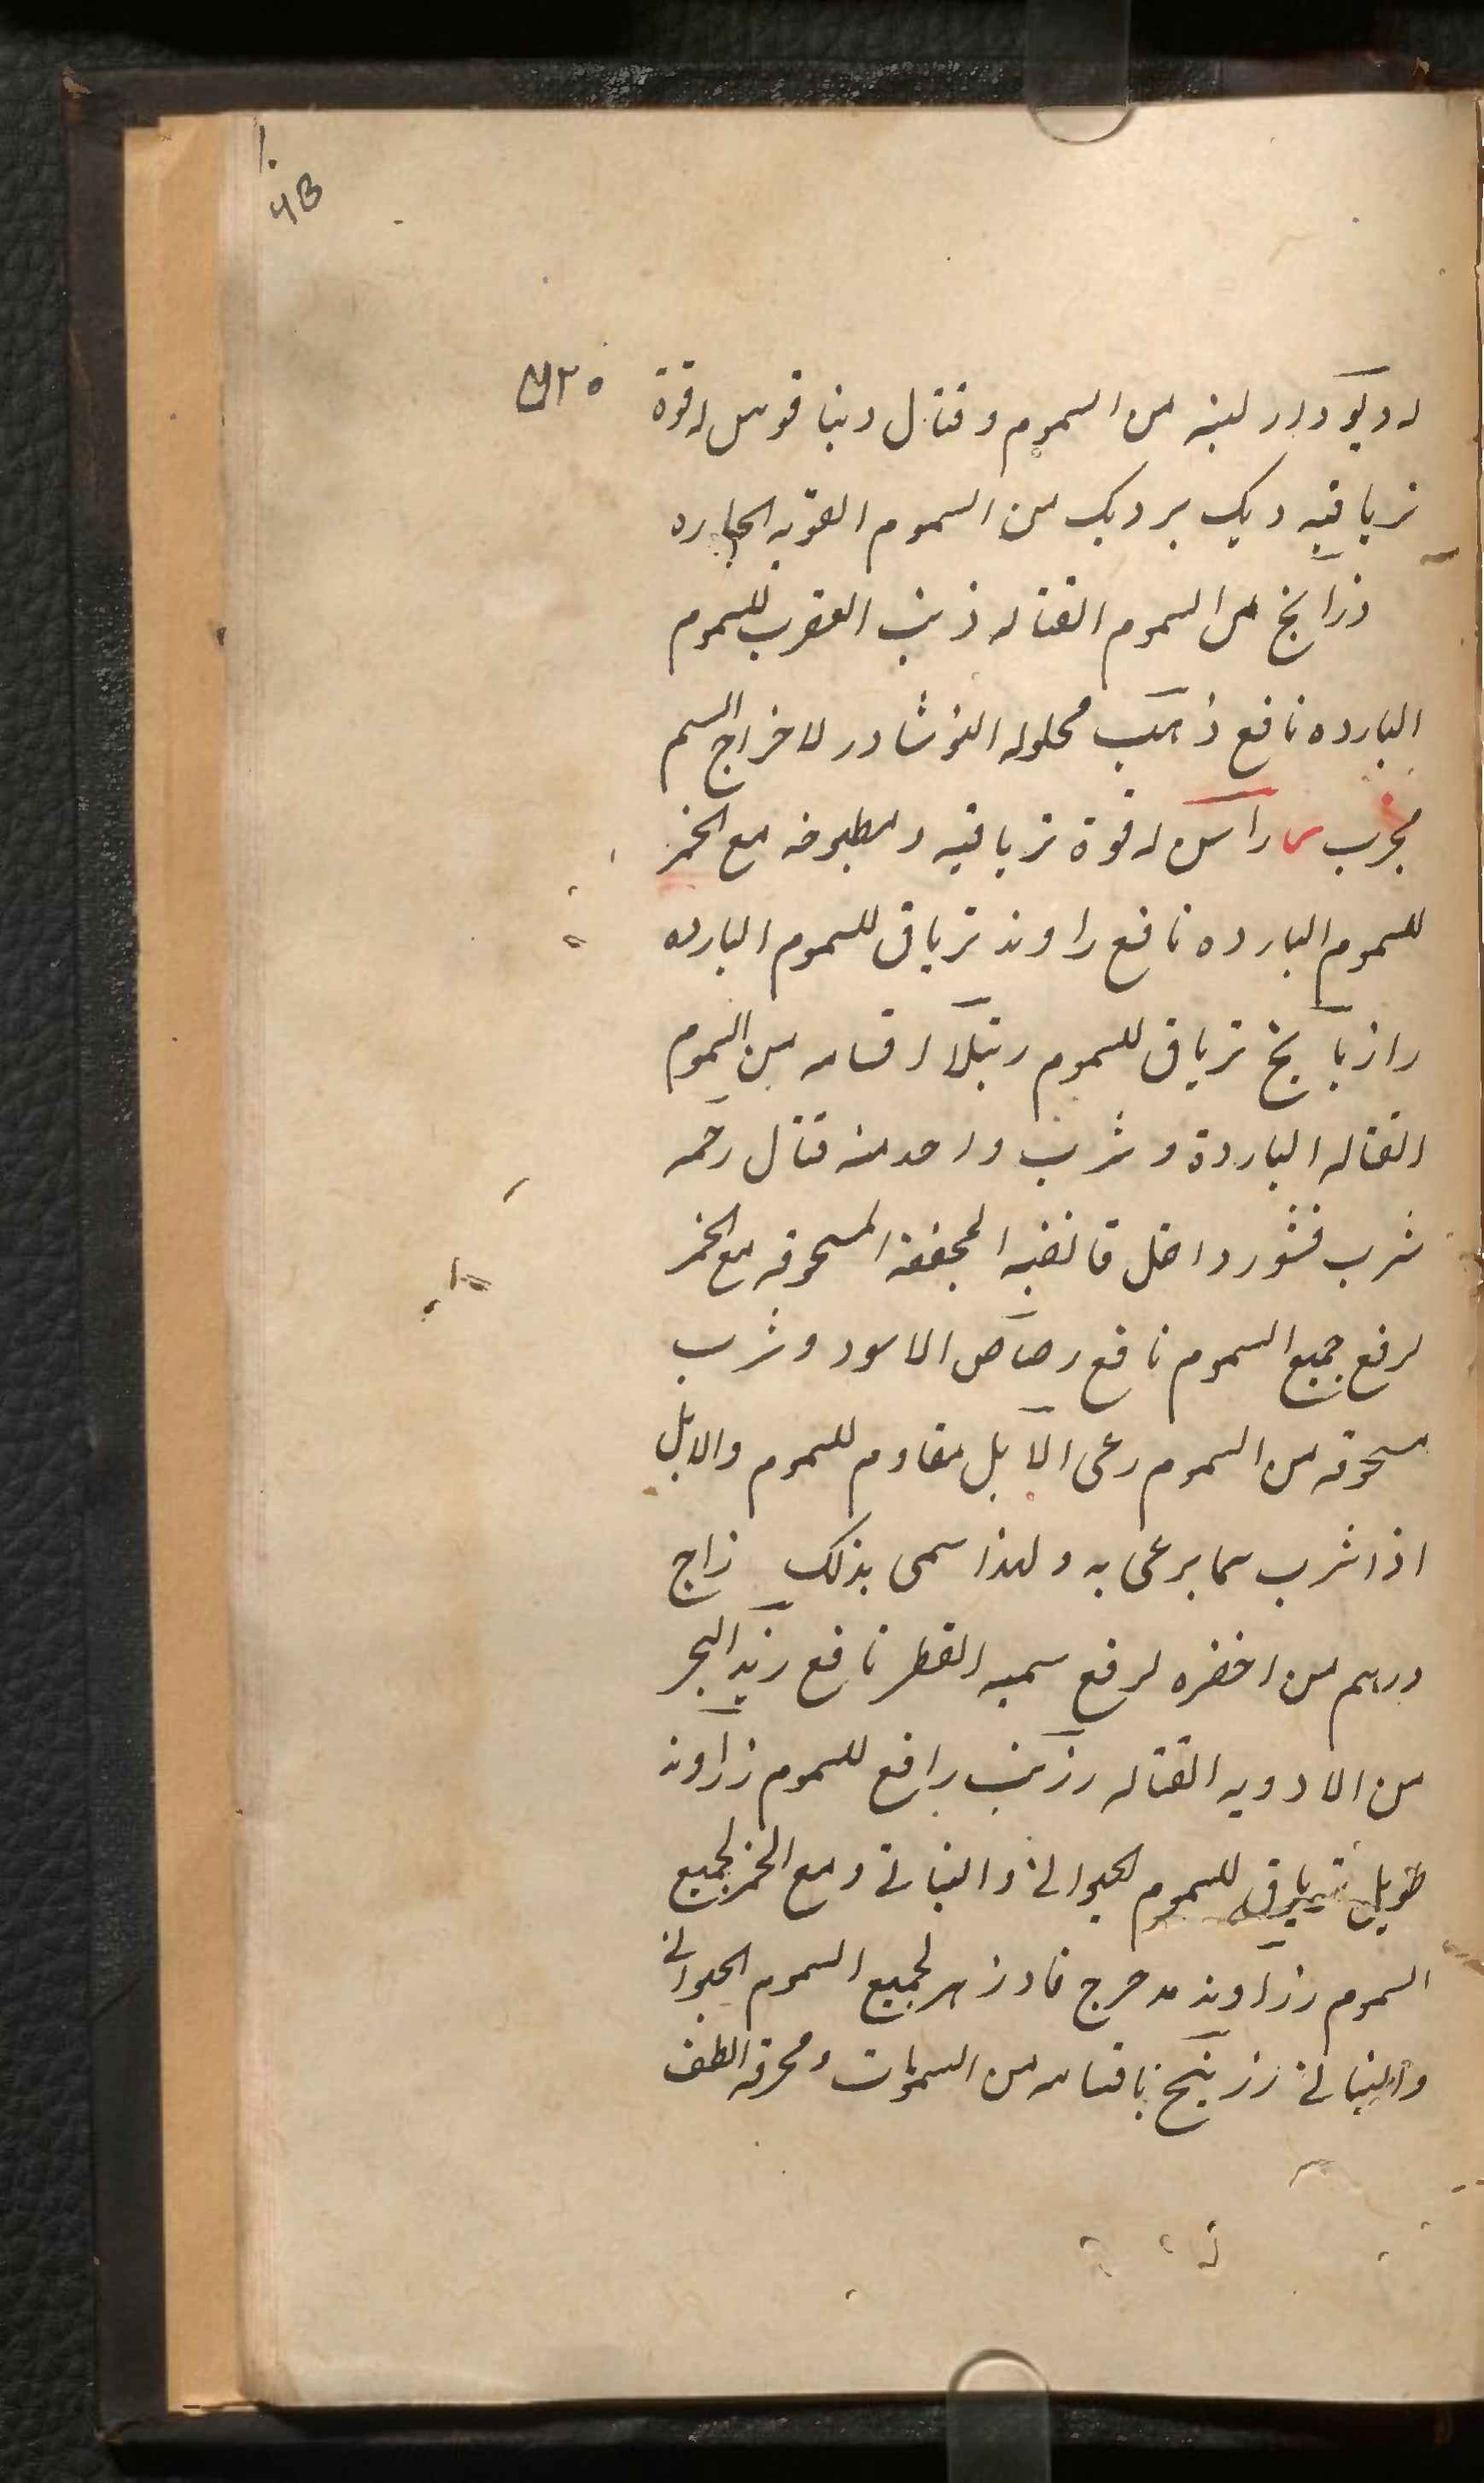 4B
له ديودار لبنه من السموم و قتال دينا قوس له قوة
ترياقيه ديك برديك من السموم القويه الحاره
ذرايح من السموم القتاله ذنب العقرب للسموم
البارده نافع ذهب محلوله النوشادر لاخراج السم
مجرب راسن له قوة ترياقيه و مطبوخه مع الخمر
للسموم البارده نافع راوند ترياق للسموم البارده
رازيانج ترياق للسموم رتيلا اقسامه من السموم
القتاله الباردة و شرب واحد منه قتال رخمه
شرب قشور داخل قانضه المجففة المسحوقه مع الخمر
لرفع جميع السموم نافع رصاص الاسود و شرب
مسحوقه من السموم رعى الابل مقاوم للسموم والابل
اذا شرب سما يرعى به و لهذا سمى بذلك زاج
درهم من اخضره لرفع سميه الفطر نافع زبد البحر
من الادويه القتاله زرنب رافع للسموم زراوند
طويل ترياق للسموم الحيوانى و النباتى و مع الخمر لجميع
السموم زراوند مدحرج فادزهر لجميع السموم الحيوانى
والنباتى زرنيخ باقسامه من السموات و محرقه الطف